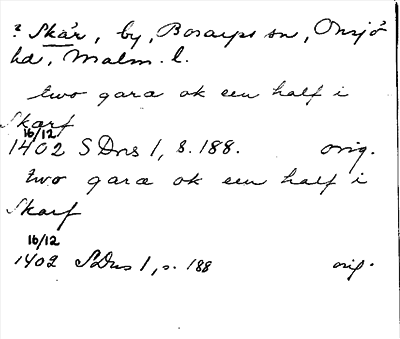 ? Skår, by, Bosarps sn, Onsjö
hd, Malm. l.
two gara ok een half i
Skarf
16/12
1402 SDns 1, s. 188. orig.
two gara ok een half i
Skarf
16/12
1402 SDns 1, s. 188 orig.